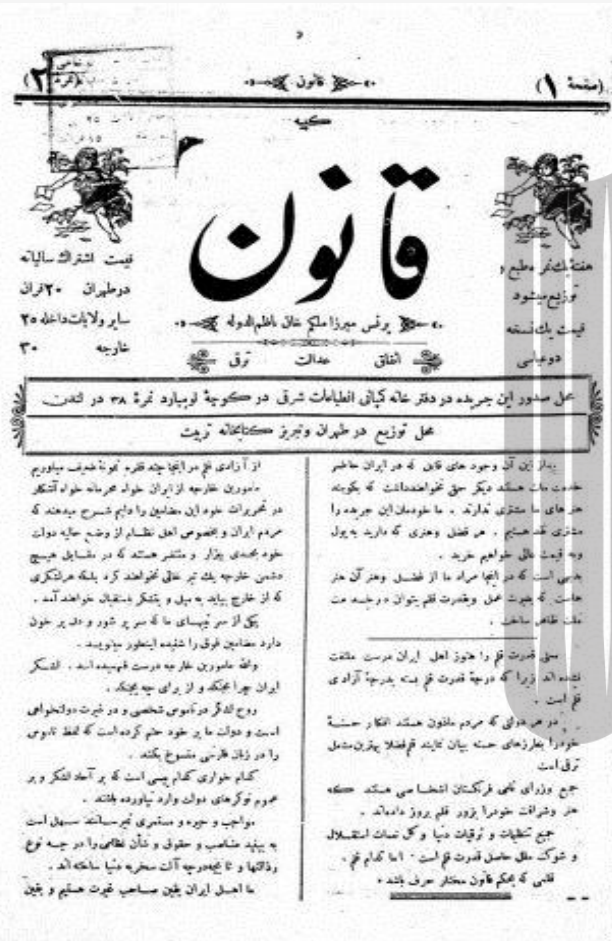 (صفحهٔ ۱)
قانون
(نمره ۲)
قانون
پرنس میرزا ملکم خان ناظم‌الدوله
اتفاق عدالت ترقی
هفتهٔ یك نمره طبع و
توزیع میشود
قیمت یك نسخه
دو عباسی
قیمت اشتراك سالیانه
در طهران ۲۰ قران
سایر ولایات داخله ۲۵
خارجه ۳۰
محل صدور این جریده در دفتر خانه کمپانی انطباعات شرقی در کوچهٔ لومبارد نمرهٔ ۳۸ در لندن
محل توزیع در طهران و تبریز کتابخانه تربیت
بعد از این آن وجود های قابل که در ایران حاضر
خدمت ملت هستند دیگر حق نخواهند داشت که بگویند
هنر های ما مشتری ندارند . ما خودمان این جریده را
مشتری نقد هستیم . هر فضل و هنری که دارید به پول
و به قیمت عالی خواهیم خرید .
بدیهی است که در اینجا مراد ما از فضل و هنر آن هنر
هاست که بضرب عمل و بقدرت قلم بتوان در خدمت
ملت ظاهر ساخت .
معنی قدرت قلم را هنوز اهل ایران درست ملتفت
نشده اند زیرا که درجهٔ قدرت قلم بسته بدرجهٔ آزادی
قلم است .
در هر دولتی که مردم ماذون هستند افکار حسنهٔ
خود را بطرزهای حسنه بیان نمایند قلم فضلا بهترین مشعل
ترقی است
جمیع وزرای نامی فرنگستان اشخاصی هستند که
هنر و شرافت خود را بزور قلم بروز داده‌اند .
جمیع تنظیمات و ترقیات دنیا و کل نعمات استقلال
و شوکت ملل حاصل قدرت قلم است . اما کدام قلم .
قلمی که بحکم قانون مختار حرف باشد .
از آزادی قلم در اینجا چند فقره نمونهٔ ضعیف میاوریم
مامورین خارجه از ایران خواه محرمانه خواه آشکار
در تحریرات خود این مضامین را دایم شرح میدهند که
مردم ایران و بخصوص اهل نظام از وضع حالیه دولت
خود بحدی بیزار و متنفر هستند که در مقابل هیچ
دشمن خارجه یك تیر خالی نخواهند کرد بلکه هر لشکری
که از خارج بیاید به میل و بتشکر باستقبال خواهند آمد .
یکی از سر تیپهای ما که سر پر شور و دل پر خون
دارد مضامین فوق را شنیده اینطور مینویسد .
والله مامورین خارجه درست فهمیده اند . لشکر
ایران چرا بجنگد و از برای چه بجنگد .
روح لشکر در ناموس شخصی و در غیرت دولتخواهی
است و دولت ما بر خود حتم کرده است که لفظ ناموس
را در زبان فارسی منسوخ بکند .
کدام خواری کدام پستی است که بر آحاد لشکر و بر
عموم نوکرهای دولت وارد نیاورده باشند .
مواجب و جیره و مستمری نمیرسانند سهل است
به ببینید مناصب و حقوق و شأن نظامی را در چه نوع
رذالتها و تا بچه درجه آلت سخریه دنیا ساخته اند .
ما اهل ایران یقین صاحب غیرت هستیم و یقین